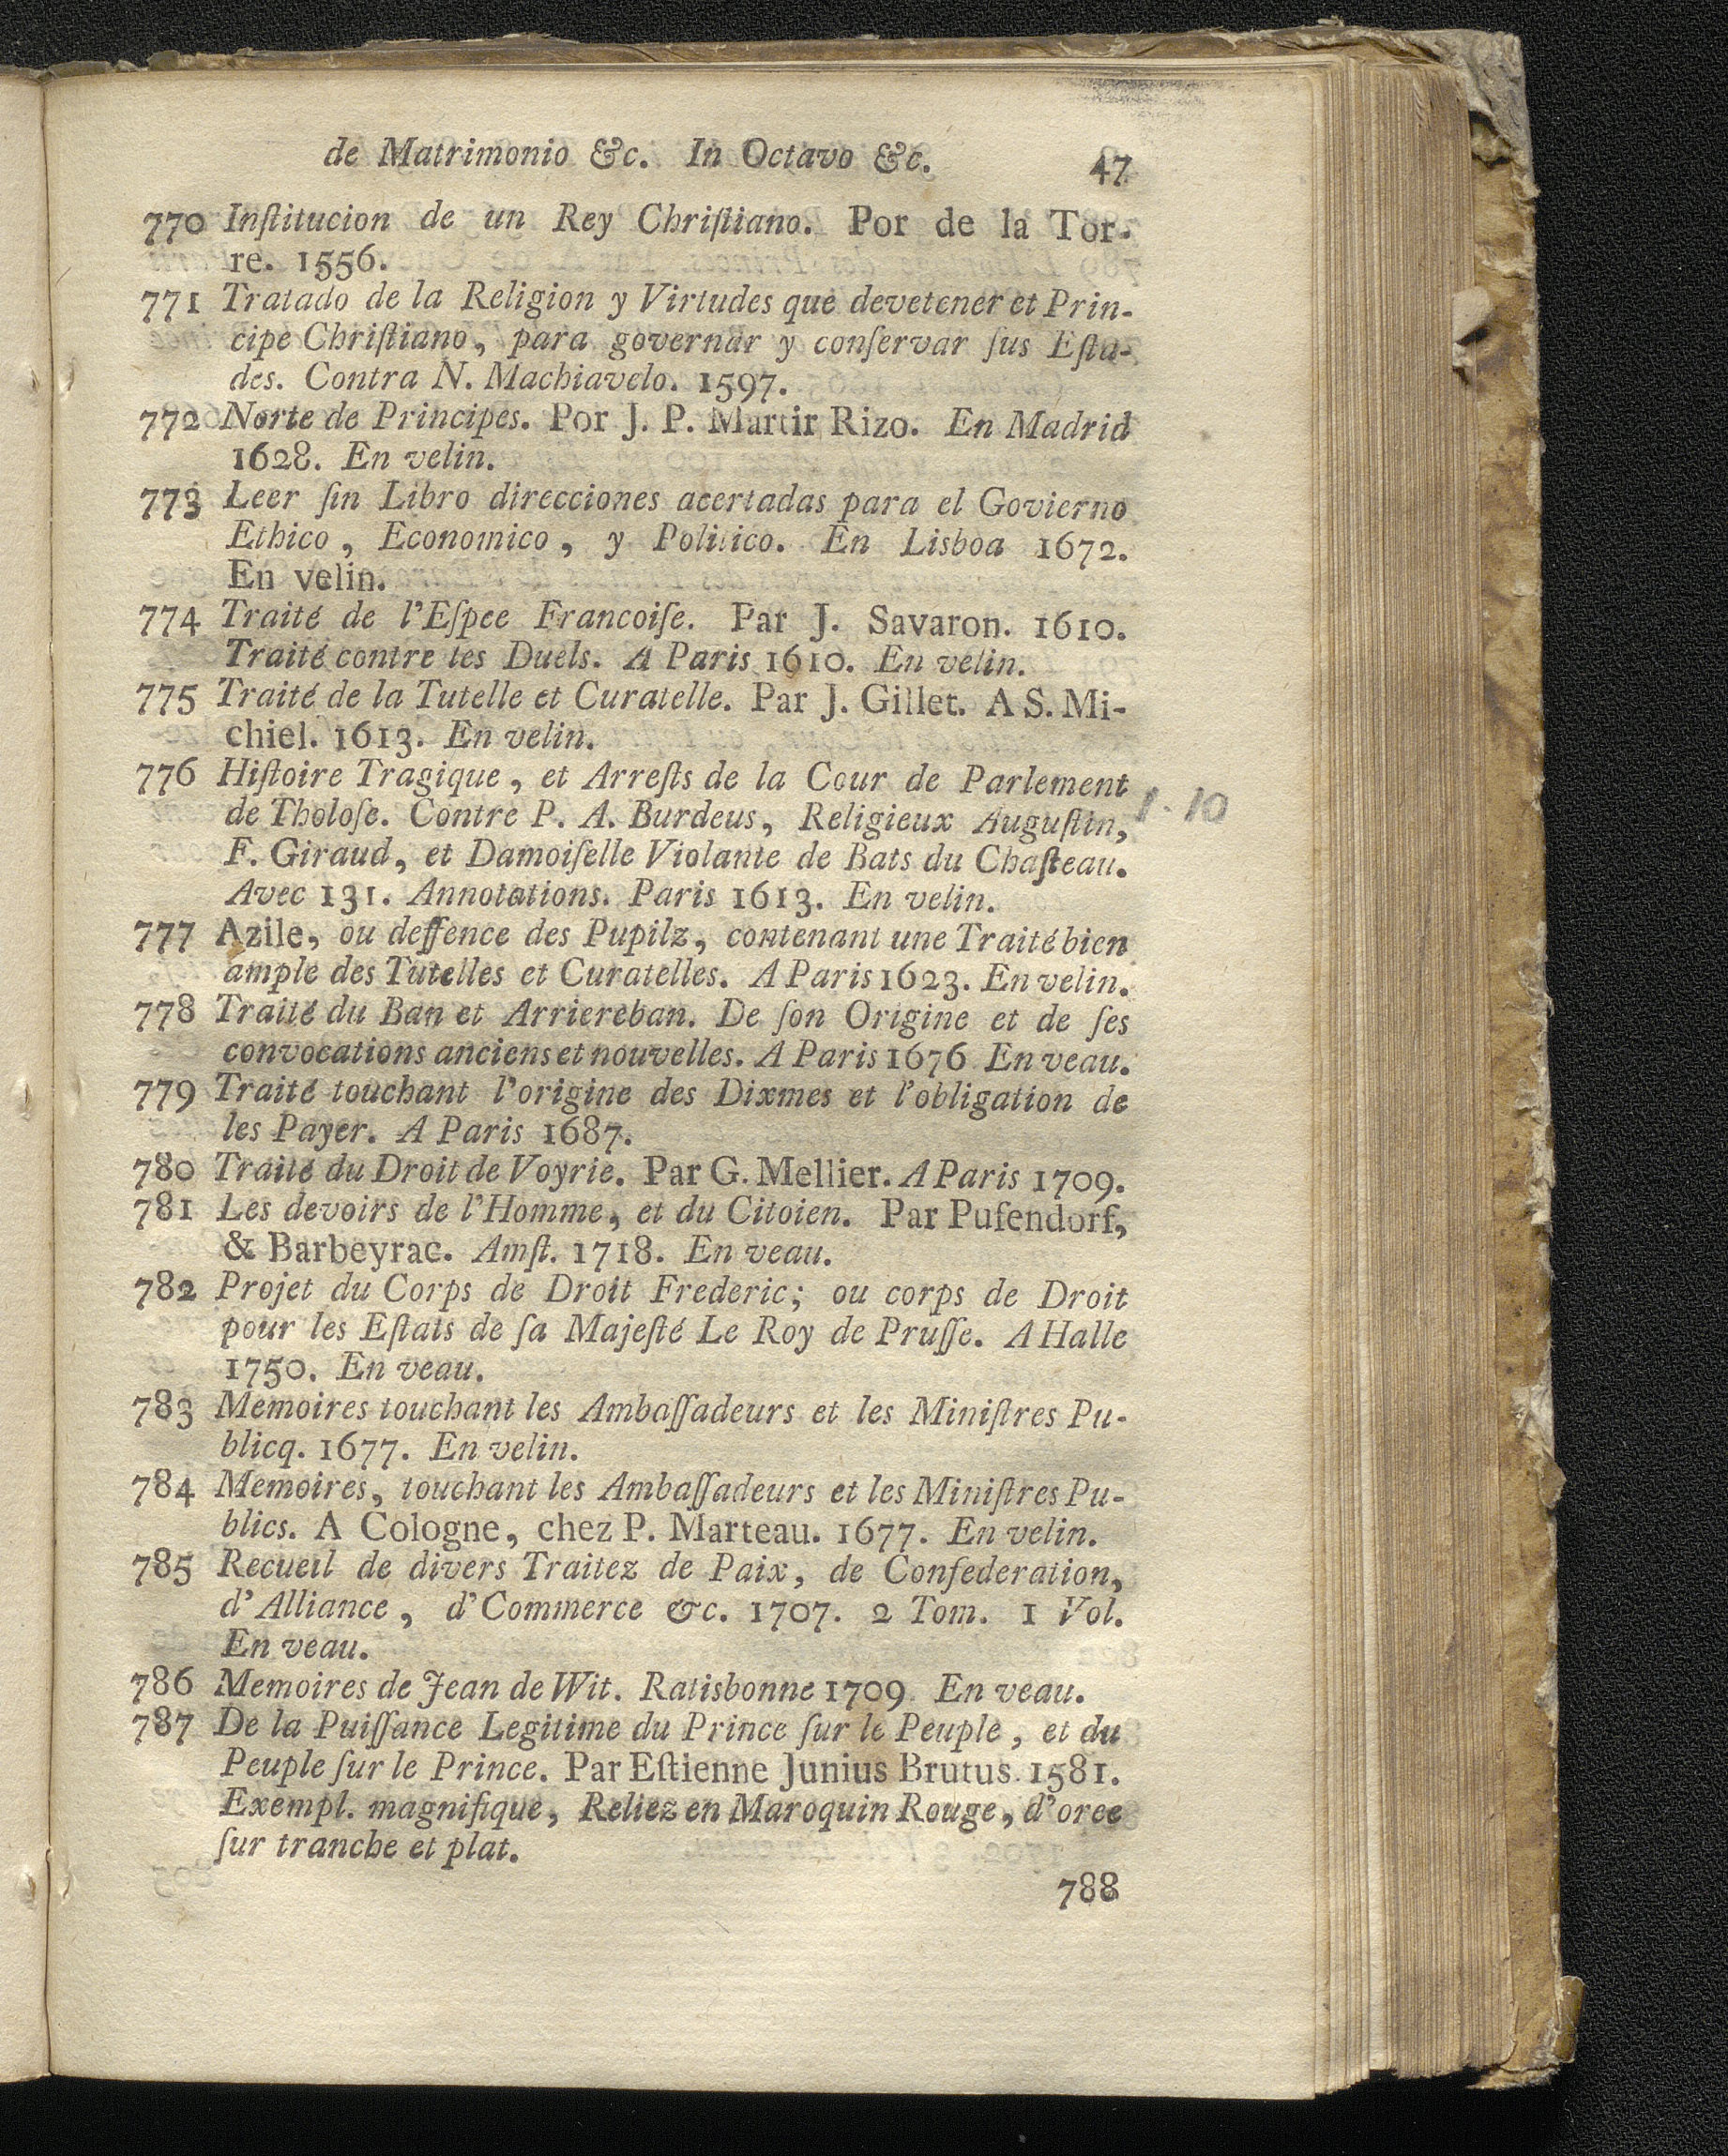 de Matrimonio &c. In Octavo &c. 47
770 Inſtitucion de un Rey Chriſtiano. Por de la Tor-
re. 1556.
771 Tratado de la Religion y Virtudes que devetener et Prin-
cipe Chriſtiano, para governar y conſervar ſus Eſta-
des. Contra N. Machiavelo. 1597.
772 Norte de Principes. Por J. P. Martir Rizo. En Madrid
1628. En velin.
773 Leer ſin Libro direcciones acertadas para el Govierno
Ethico, Economico, y Politico. En Lisboa 1672.
En velin.
774 Traité de l'Eſpee Francoiſe. Par J. Savaron. 1610.
Traité contre les Duels. A Paris 1610. En velin.
775 Traité de la Tutelle et Curatelle. Par J. Gillet. A S. Mi-
chiel. 1613. En velin.
776 Hiſtoire Tragique, et Arreſts de la Cour de Parlement
de Tholoſe. Contre P. A. Burdeus, Religieux Auguſtin, 1-10
F. Giraud, et Damoiſelle Violante de Bats du Chaſteau.
Avec 131. Annotations. Paris 1613. En velin.
777 Azile, ou deffence des Pupilz, contenant une Traité bien
ample des Tutelles et Curatelles. A Paris 1623. En velin.
778 Traité du Ban et Arriereban. De ſon Origine et de ſes
convocations anciens et nouvelles. A Paris 1676 En veau.
779 Traité touchant l'origine des Dixmes et l'obligation de
les Payer. A Paris 1687.
780 Traité du Droit de Voyrie. Par G. Mellier. A Paris 1709.
781 Les devoirs de l'Homme, et du Citoien. Par Pufendorf,
& Barbeyrac. Amſt. 1718. En veau.
782 Projet du Corps de Droit Frederic; ou corps de Droit
pour les Eſtats de ſa Majeſté Le Roy de Pruſſe. A Halle
1750. En veau.
783 Memoires touchant les Ambaſſadeurs et les Miniſtres Pu-
blicq. 1677. En velin.
784 Memoires, touchant les Ambaſſadeurs et les Miniſtres Pu-
blics. A Cologne, chez P. Marteau. 1677. En velin.
785 Recueil de divers Traitez de Paix, de Confederation,
d'Alliance, d'Commerce &c. 1707. 2 Tom. 1 Vol.
En veau.
786 Memoires de Jean de Wit. Ratisbonne 1709. En veau.
787 De la Puiſſance Legitime du Prince ſur le Peuple, et du
Peuple ſur le Prince. Par Eſtienne Junius Brutus. 1581.
Exempl. magnifique, Reliez en Maroquin Rouge, d'oree
ſur tranche et plat.
788